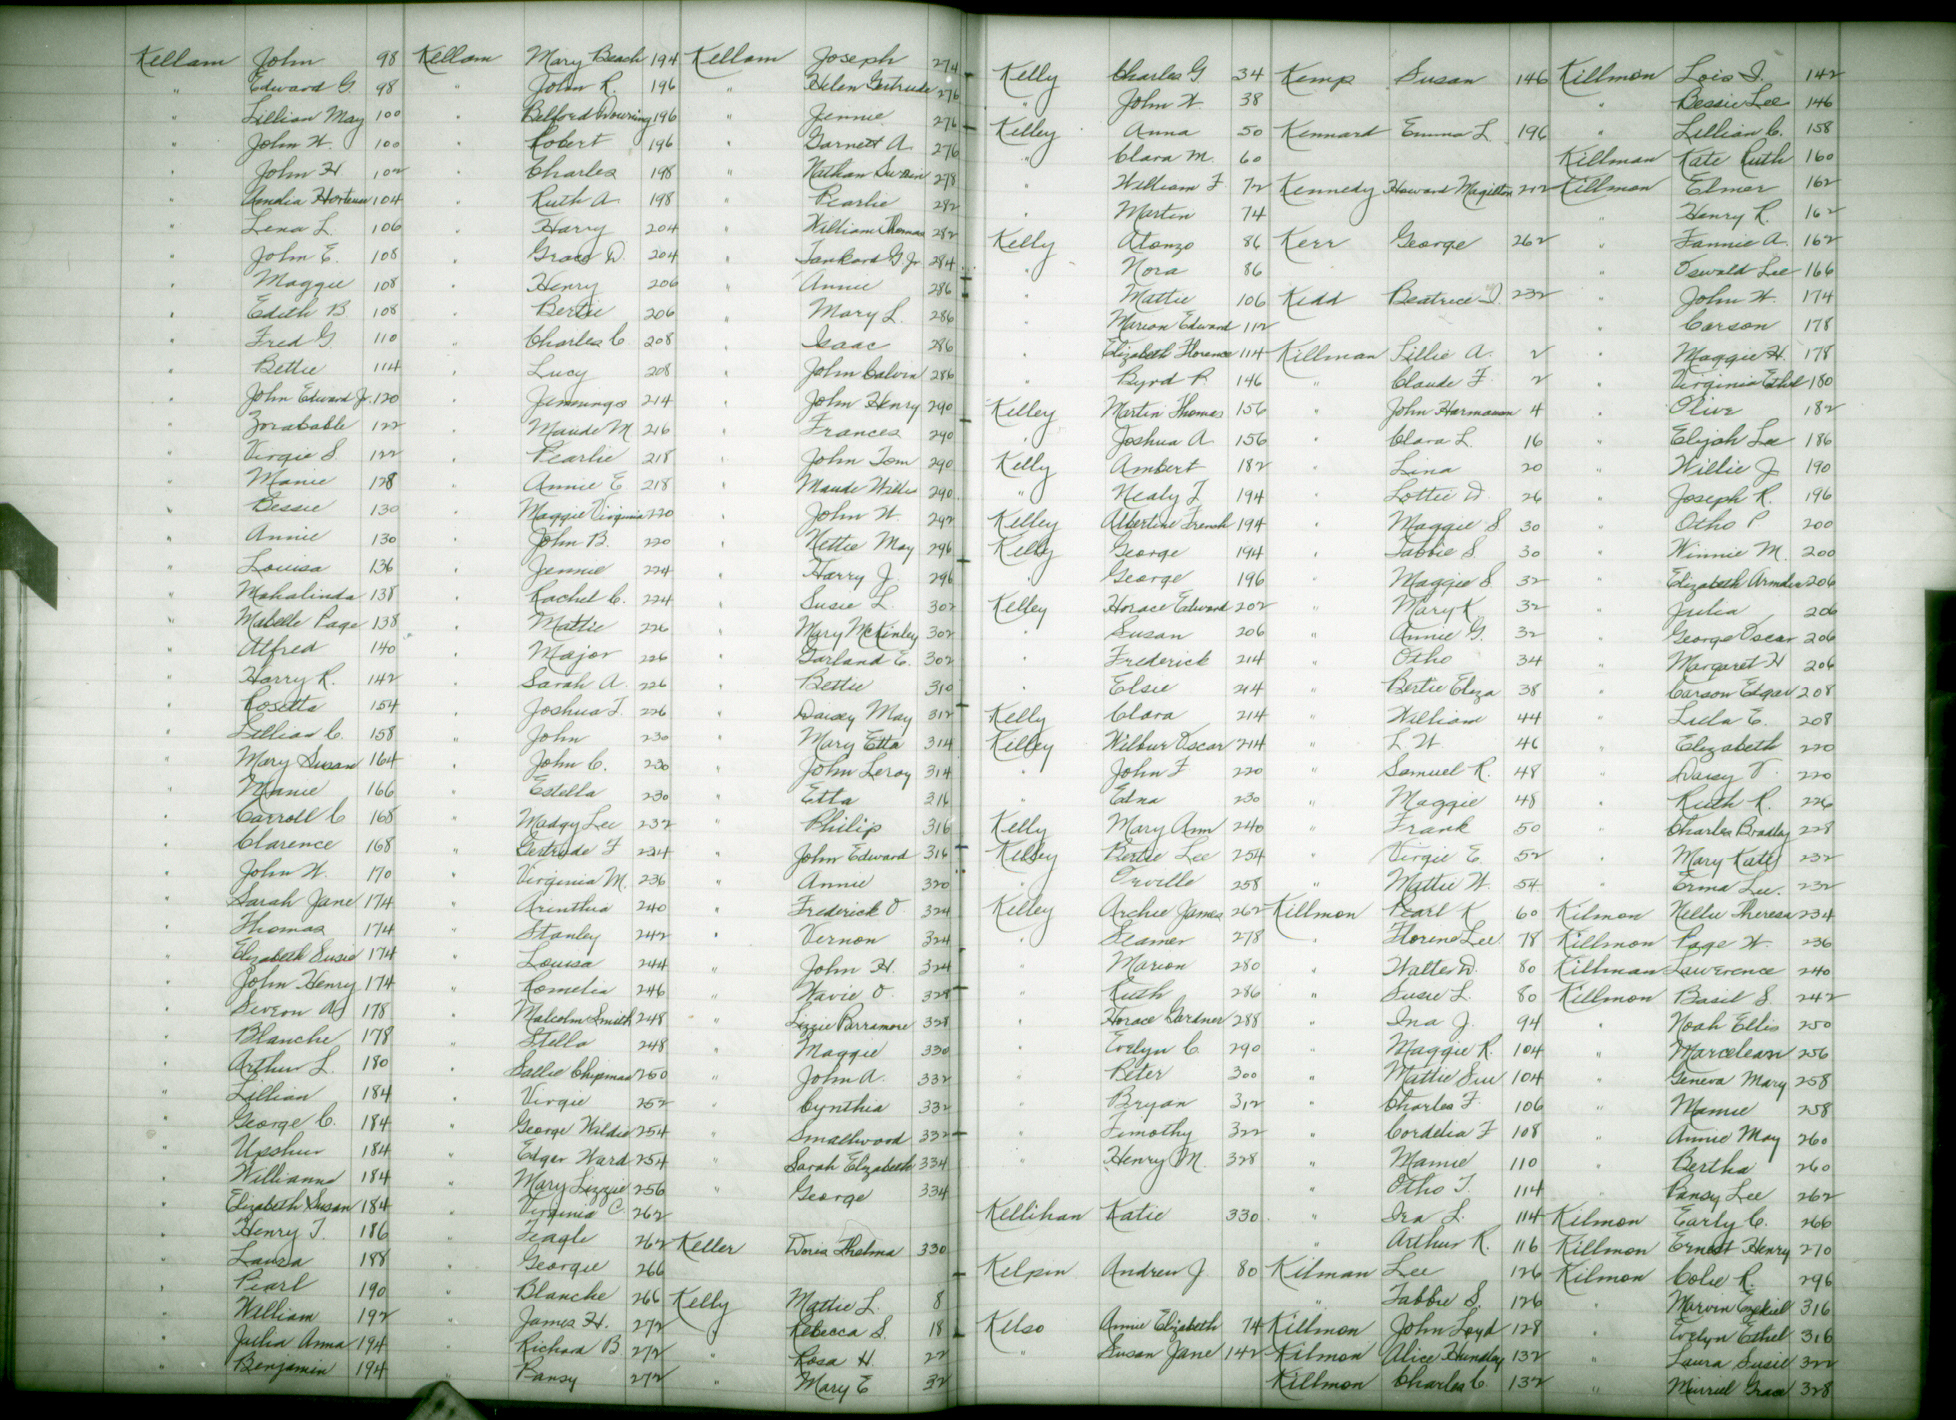 Kellam John 98
" Edward G. 98
" Lillian May 100
" John W. 100
" John H. 102
" Amelia Hortense 104
" Lena L. 106
" John E. 108
" Maggie 108
" Edith B 108
" Fred G 110
" Bettie 114
" John Edward Jr. 120
" Zorabable 122
" Virgie S 122
" Manie 128
" Bessie 130
" Annie 130
" Louisa 136
" Mahalinda 138
" Mabelle Page 138
" Alfred 140
" Harry R. 142
" Rosetta 154
" Lillian C. 158
" Mary Susan 164
" Manie 166
" Carroll C 168
" Clarence 168
" John W. 170
" Sarah Jane 174
" Thomas 174
" Elizabeth Susie 174
" John Henry 174
" Severn A 178
" Blanche 178
" Arthur L. 180
" Lillian 184
" George C. 184
" Upshur 184
" Willianna 184
" Elizabeth Susan 184
" Henry T. 186
" Laura 188
" Pearl 190
" William 192
" Julia Anna 194
" Benjamin 194
Kellam Mary Beach 194
" John R. 196
" Belford Downing 196
" Robert 196
" Charles 198
" Ruth A. 198
" Harry 204
" Grace D. 204
" Henry 206
" Bertie 206
" Charles C 208
" Lucy 208
" Jennings 214
" Maude M 216
" Pearlie 218
" Annie E 218
" Maggie Virginia 220
" John B. 220
" Jennie 224
" Rachel C. 224
" Mattie 226
" Major 226
" Sarah A. 226
" Joshua T. 226
" John 230
" John C. 230
" Estella 230
" Madgy Lee 232
" Gertrude F 234
" Virginia M. 236
" Arinthia 240
" Stanley 242
" Louisa 244
" Romelia 246
" Malcolm Smith 248
" Stella 248
" Sallie Chipman 250
" Virgie 252
" George Waldie 254
" Edgar Ward 254
" Mary Lizzie 256
" Virginia C 262
" Teagle 262
" Georgie 266
" Blanche 266
" James H. 272
" Richard B 272
" Pansy 272
Kellam Joseph 274
" Helen Gertrude 276
" Jennie 276
" Garnett A. 276
" Nathan Swain 278
" Pearlie 282
" William Thomas 282
" Tankard G. Jr 284
" Annie 286
" Mary L. 286
" Isaac 286
" John Calvin 286
" John Henry 290
" Frances 290
" John Tom 290
" Maude Willis 290
" John W. 292
" Nettie May 296
" Harry J. 296
" Susie L. 302
" Mary McKinley 302
" Garland E. 302
" Bettie 310
" Daisey May 312
" Mary Etta 314
" John Leroy 314
" Etta 316
" Philip 316
" John Edward 316
" Annie 320
" Frederick O 324
" Vernon 324
" John H. 324
" Wavie O. 328
" Lizzie Parramore 328
" Maggie 330
" John A. 332
" Cynthia 332
" Smallwood 332
" Sarah Elizabeth 334
" George 334
Keller Doris Thelma 330
Kelly Mattie L. 8
" Rebecca S. 18
" Rosa H. 22
" Mary E 32
Kelly Charles G 34
" John W. 38
Kelley Anna 50
" Clara M. 60
" William F 72
" Martin 74
Kelly Alonzo 86
" Nora 86
" Mattie 106
" Marion Edward 112
" Elizabeth Florence 114
" Byrd P. 146
Kelley Martin Thomas 156
" Joshua A. 156
Kelly Ambert 182
" Nealy T 194
Kelley Albertine French 194
Kelly George 194
" George 196
Kelley Horace Edward 202
" Susan 206
" Frederick 214
" Elsie 214
Kelly Clara 214
Kelley Wilbur Oscar 214
" John F 220
" Edna 230
Kelly Mary Ann 240
Kelley Bertie Lee 254
" Orville 258
Kelley Archie James 262
" Seamer 278
" Marion 280
" Ruth 286
" Horace Gardner 288
" Evelyn C. 290
" Peter 300
" Bryan 312
" Timothy 322
" Henry M. 328
Kellihan Katie 330
Kelpin Andrew J. 80
Kelso Annie Elizabeth 74
" Susan Jane 142
Kemp Susan 146
Kennard Emma L 196
Kennedy Howard Magilton 212
Kerr George 262
Kidd Beatrice D. 232
Killman Lillie A. 2
" Claude F. 2
" John Harmanson 4
" Clara L. 16
" Lina 20
" Lottie D. 26
" Maggie S 30
" Tabbie S. 30
" Maggie S. 32
" Mary K 32
" Annie G. 32
" Otho 34
" Bertie Eliza 38
" William 44
" L W 46
" Samuel R. 48
" Maggie 48
" Frank 50
" Virgie E. 52
" Mattie W. 54
Killmon Pearl K 60
" Florence Lee 78
" Walter D. 80
" Susie L. 80
" Ina J. 94
" Maggie R. 104
" Mattie Sue 104
" Charles F. 106
" Cordelia F 108
" Mamie 110
" Otho T. 114
" Ira L. 114
" Arthur R. 116
Kilman Lee 126
" Tabbie S. 126
Killmon John Loyd 128
Kilmon Alice Hundley 132
Killmon Charles C. 132
Killmon Lois I. 142
" Bessie Lee 146
" Lillian C. 158
Killman Kate Ruth 160
Killmon Elmer 162
" Henry R. 162
" Fannie A. 162
" Oswald Lee 166
" John W. 174
" Carson 178
" Maggie H. 178
" Virginia Ethel 180
" Olive 182
" Elijah Lee 186
" Willie J 190
" Joseph R. 196
" Otho P 200
" Winnie M. 200
" Elizabeth Arminda 206
" Julia 206
" George Oscar 206
" Margaret H 206
" Carson Edgar 208
" Lula E. 208
" Elizabeth 220
" Daisy V. 220
" Ruth R. 226
" Charles Bradley 228
" Mary Kate 232
" Erma Lee. 232
Kilmon Nellie Theresa 234
Killmon Page W. 236
Killman Lawerence 240
Killmon Basil S. 242
" Noah Ellis 250
" Marcelean 256
" Geneva Mary 258
" Mamie 258
" Annie May 260
" Bertha 260
" Pansy Lee 262
Kilmon Early C. 266
Killmon Ernest Henry 270
Kilmon Colie R. 296
" Marvin Ezekiel 316
" Evelyn Ethel 316
" Laura Susie 322
" Murriel Grace 328